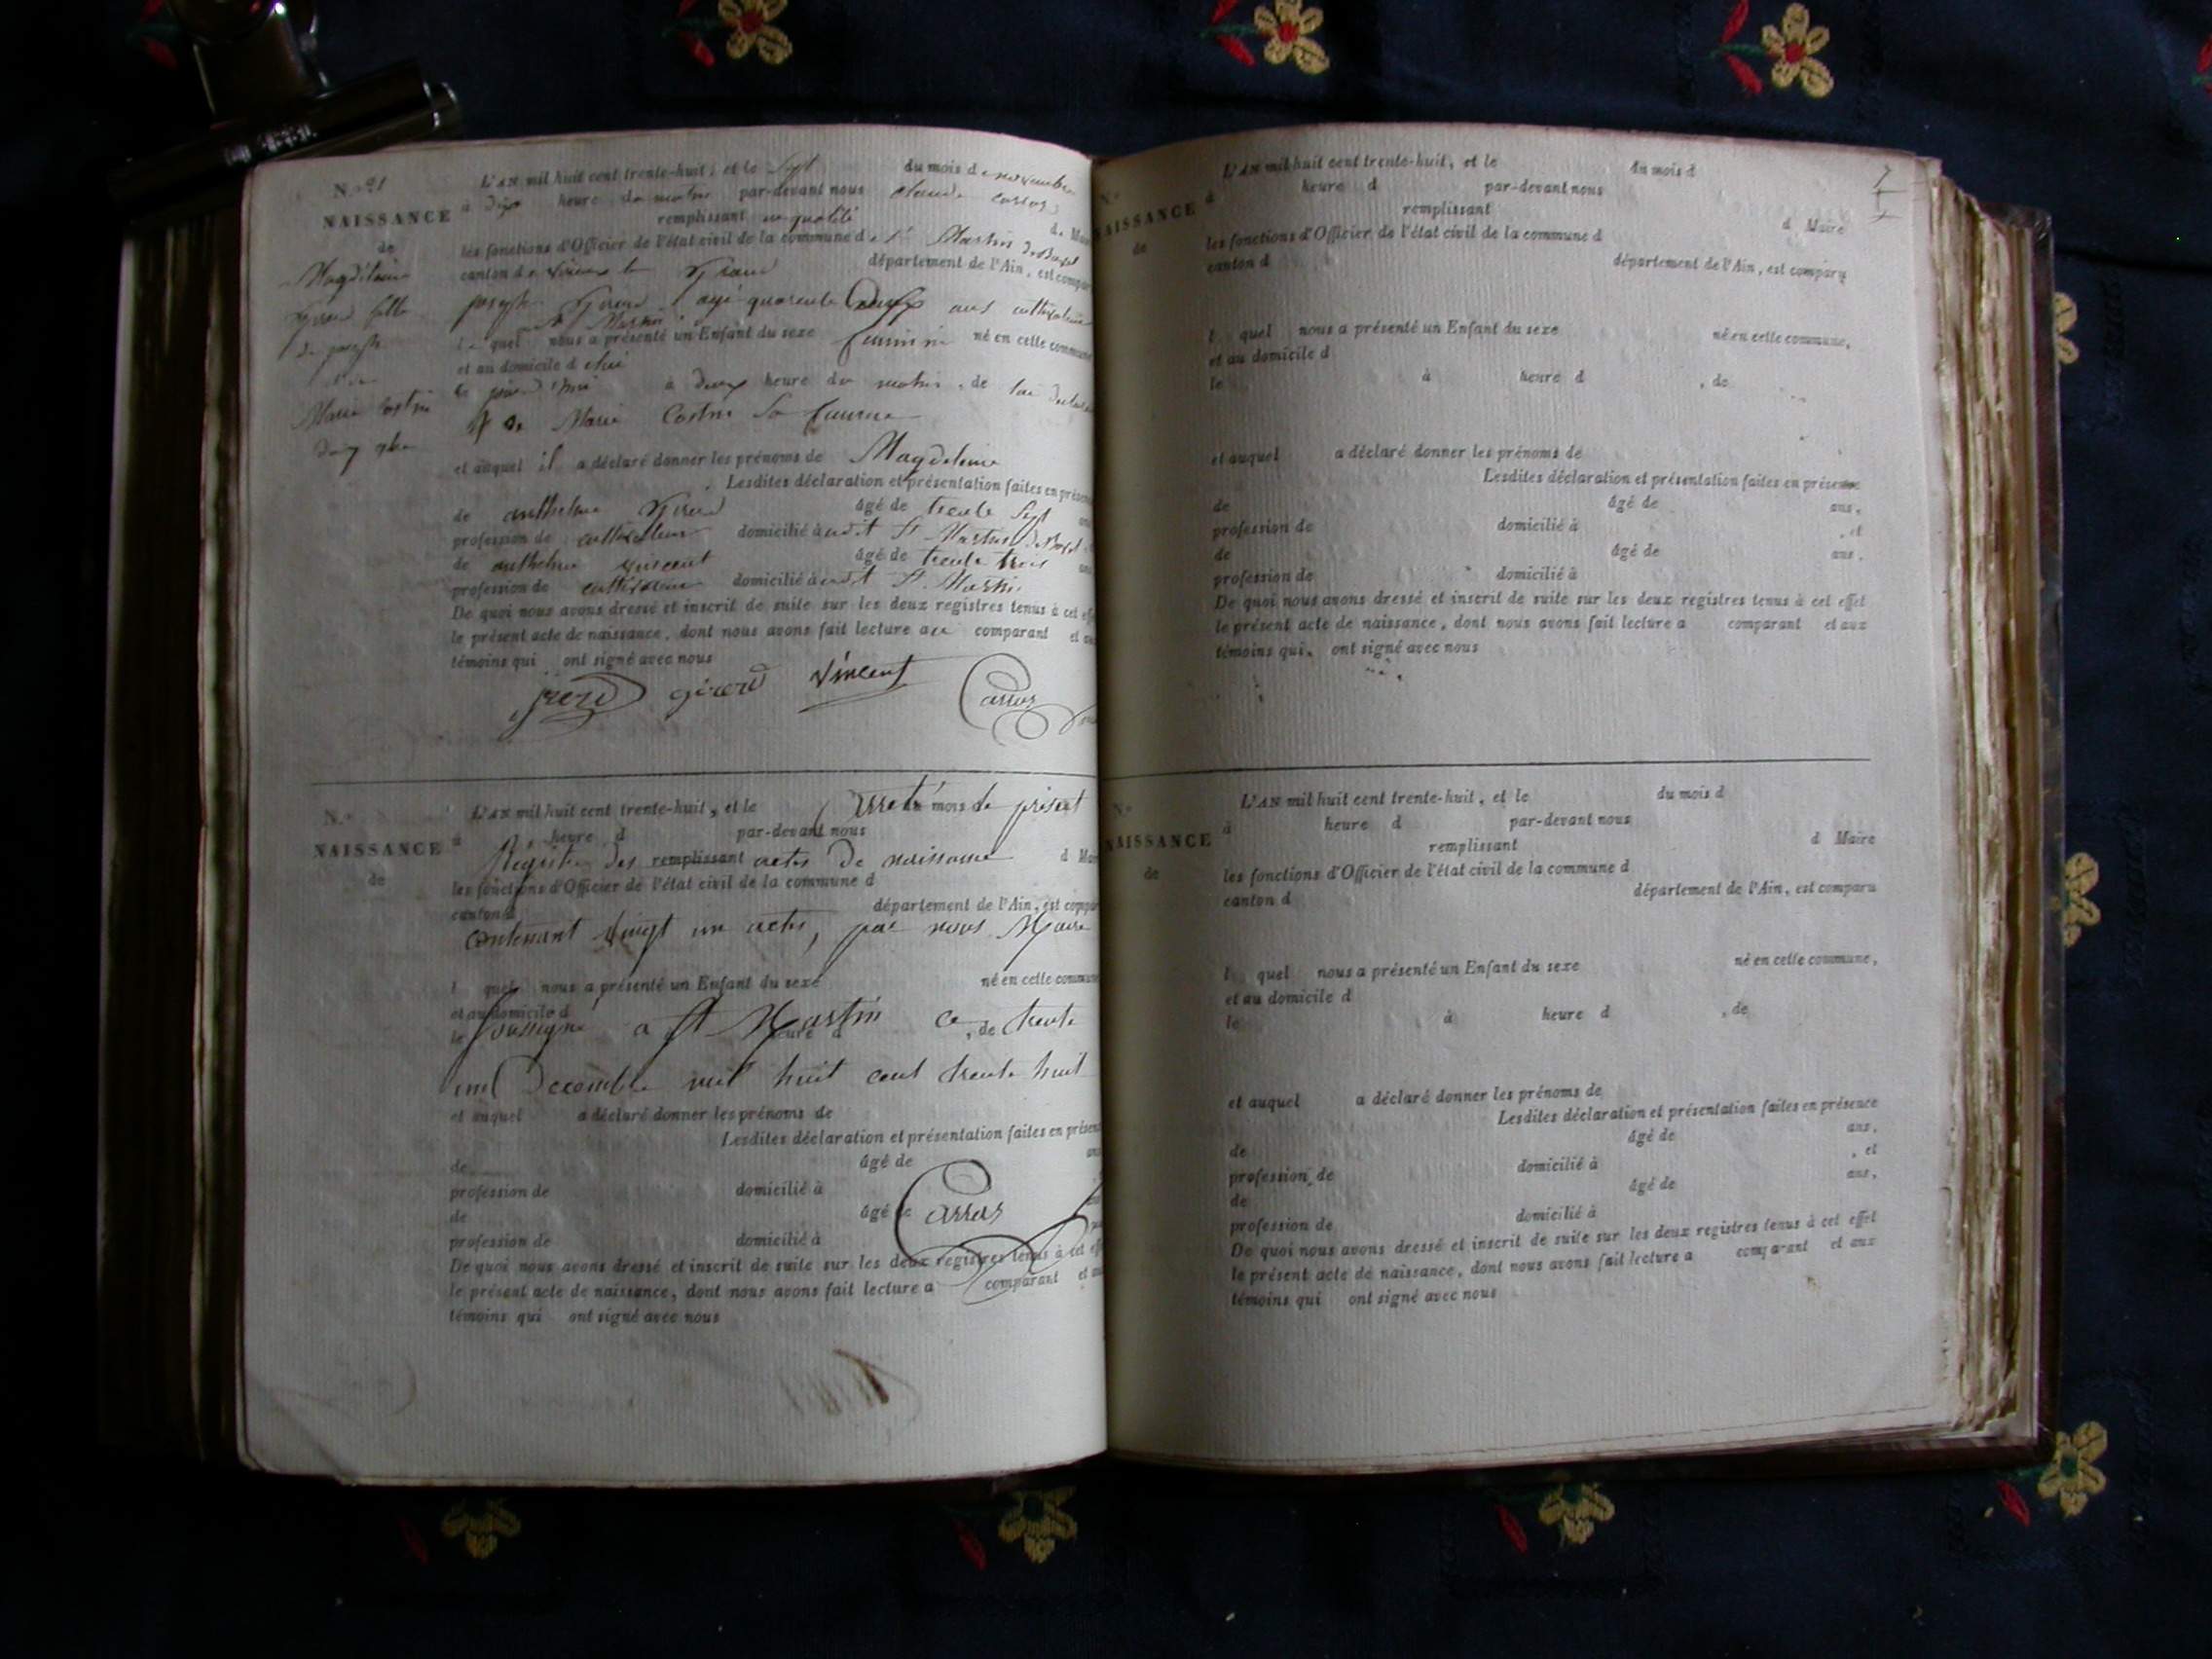 N.º 21
NAISSANCE
de
Magdelaine
girerd fille
de joseph
Marie
L'AN mil huit cent trente-huit, et le sept du mois de novembre
à dix heure du matin par-devant nous claude
remplissant en qualité de Mai
les fonctions d'Officier de l'état civil de la commune de St Martin
canton de le grand département de l'Ain, est compar
joseph girerd agé quarente deux ans cultivateur
St Martin
le quel nous a présenté un Enfant du sexe feminin né en cette commune
et au domicile d
le jour d'hui à deux heure du matin, de lui
& de Marie sa femme
et auquel il a déclaré donner les prénoms de Magdeleine
Lesdites déclaration et présentation faites en présen
de anthelme girerd âgé de trente sept ans
profession de cultivateur domicilié à audit St Martin
de anthelme vincent âgé de trente trois ans
profession de cultivateur domicilié à audit St Martin
De quoi nous avons dressé et inscrit de suite sur les deux registres tenus à cet eff
le présent acte de naissance, dont nous avons fait lecture au comparant et au
témoins qui ont signé avec nous
girerd vincent Carras
N.º
NAISSANCE
de
L'AN mil huit cent trente-huit, et le du mois d
arreté le présent
à heure d par-devant nous
Régistre des actes de naissance
remplissant d Mai
les fonctions d'Officier de l'état civil de la commune d
canton d département de l'Ain, est compar
contenant vingt un actes, par nous Maire
l quel nous a présenté un Enfant du sexe né en cette commune
et au domicile d
soussigné a St Martin ce trente
le heure d , de
un Decembre mil huit cent trente huit
et auquel a déclaré donner les prénoms de
Lesdites déclaration et présentation faites en présen
de âgé de ans
profession de domicilié à
de âgé de
Carras
profession de domicilié à
De quoi nous avons dressé et inscrit de suite sur les deux registres tenus à cet eff
le présent acte de naissance, dont nous avons fait lecture a comparant et au
témoins qui ont signé avec nous
7
N.º
NAISSANCE
de
L'AN mil huit cent trente-huit, et le du mois d
à heure d par-devant nous
remplissant d Maire
les fonctions d'Officier de l'état civil de la commune d
canton d département de l'Ain, est comparu
l quel nous a présenté un Enfant du sexe né en cette commune,
et au domicile d
le à heure d , de
et auquel a déclaré donner les prénoms de
Lesdites déclaration et présentation faites en présence
de âgé de ans,
profession de domicilié à , et
de âgé de ans,
profession de domicilié à
De quoi nous avons dressé et inscrit de suite sur les deux registres tenus à cet effet
le présent acte de naissance, dont nous avons fait lecture a comparant et aux
témoins qui ont signé avec nous
N.º
NAISSANCE
de
L'AN mil huit cent trente-huit, et le du mois d
à heure d par-devant nous
remplissant d Maire
les fonctions d'Officier de l'état civil de la commune d
canton d département de l'Ain, est comparu
l quel nous a présenté un Enfant du sexe né en cette commune,
et au domicile d
le à heure d , de
et auquel a déclaré donner les prénoms de
Lesdites déclaration et présentation faites en présence
de âgé de ans,
profession de domicilié à , et
de âgé de ans,
profession de domicilié à
De quoi nous avons dressé et inscrit de suite sur les deux registres tenus à cet effet
le présent acte de naissance, dont nous avons fait lecture a comparant et aux
témoins qui ont signé avec nous